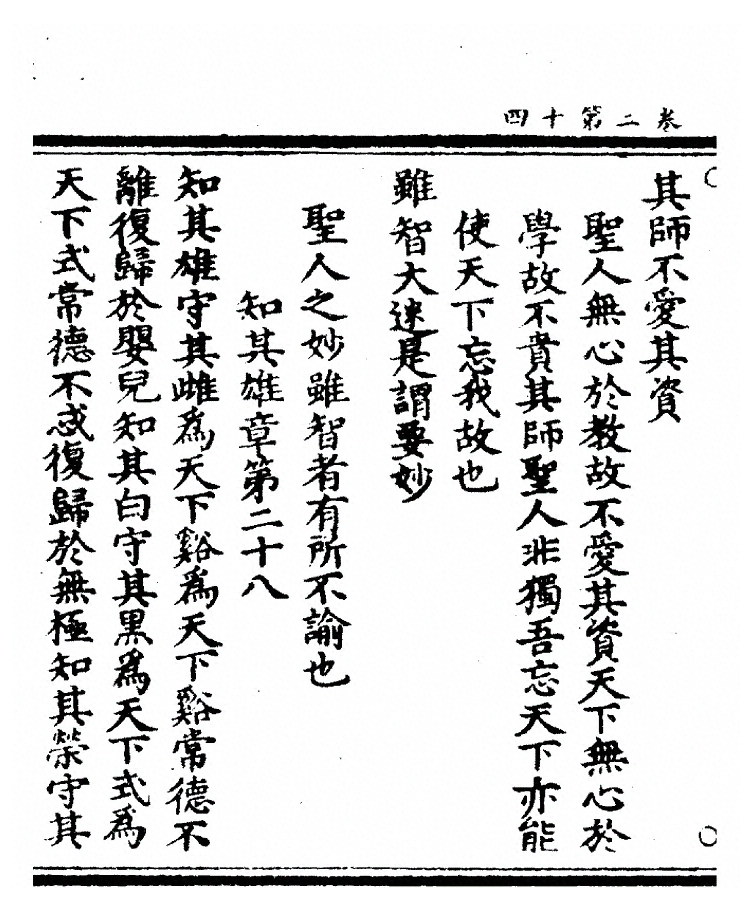 卷二第十四
其師不愛其資
聖人無心於教故不愛其資天下無心於
學故不貴其師聖人非獨吾忘天下亦能
使天下忘我故也
雖智大迷是謂要妙
聖人之妙雖智者有所不諭也
知其雄章第二十八
知其雄守其雌為天下谿為天下谿常德不
離復歸於嬰兒知其白守其黑為天下式為
天下式常德不忒復歸於無極知其榮守其